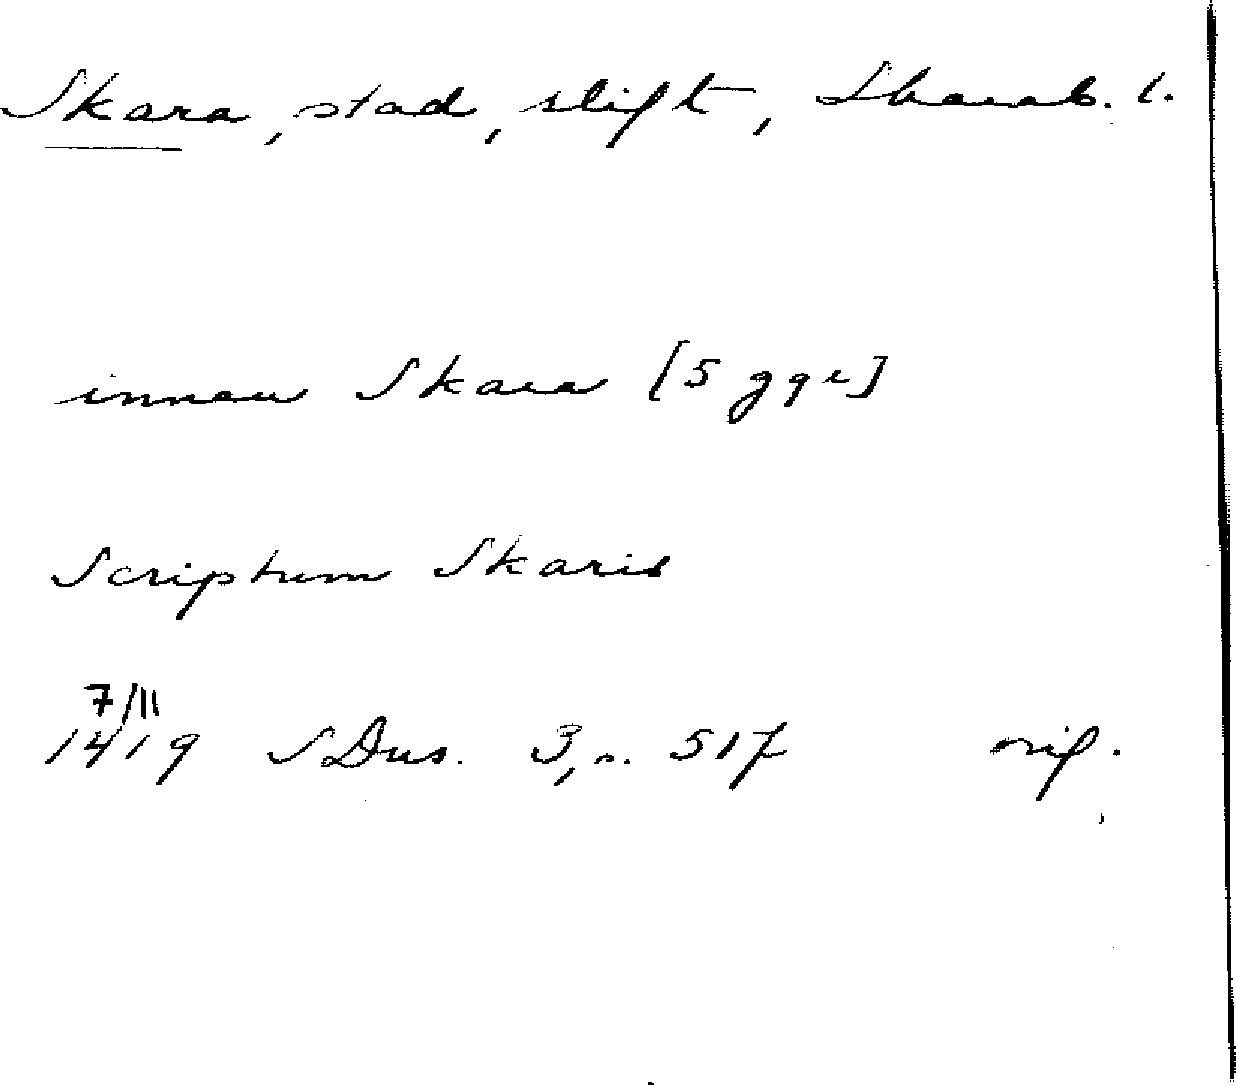 Skara, stad, stift, Skarab. l.
innan Skara [5 ggr]
Scriptum Skaris
7/11
1419 SDns. 3, n. 517 orig.